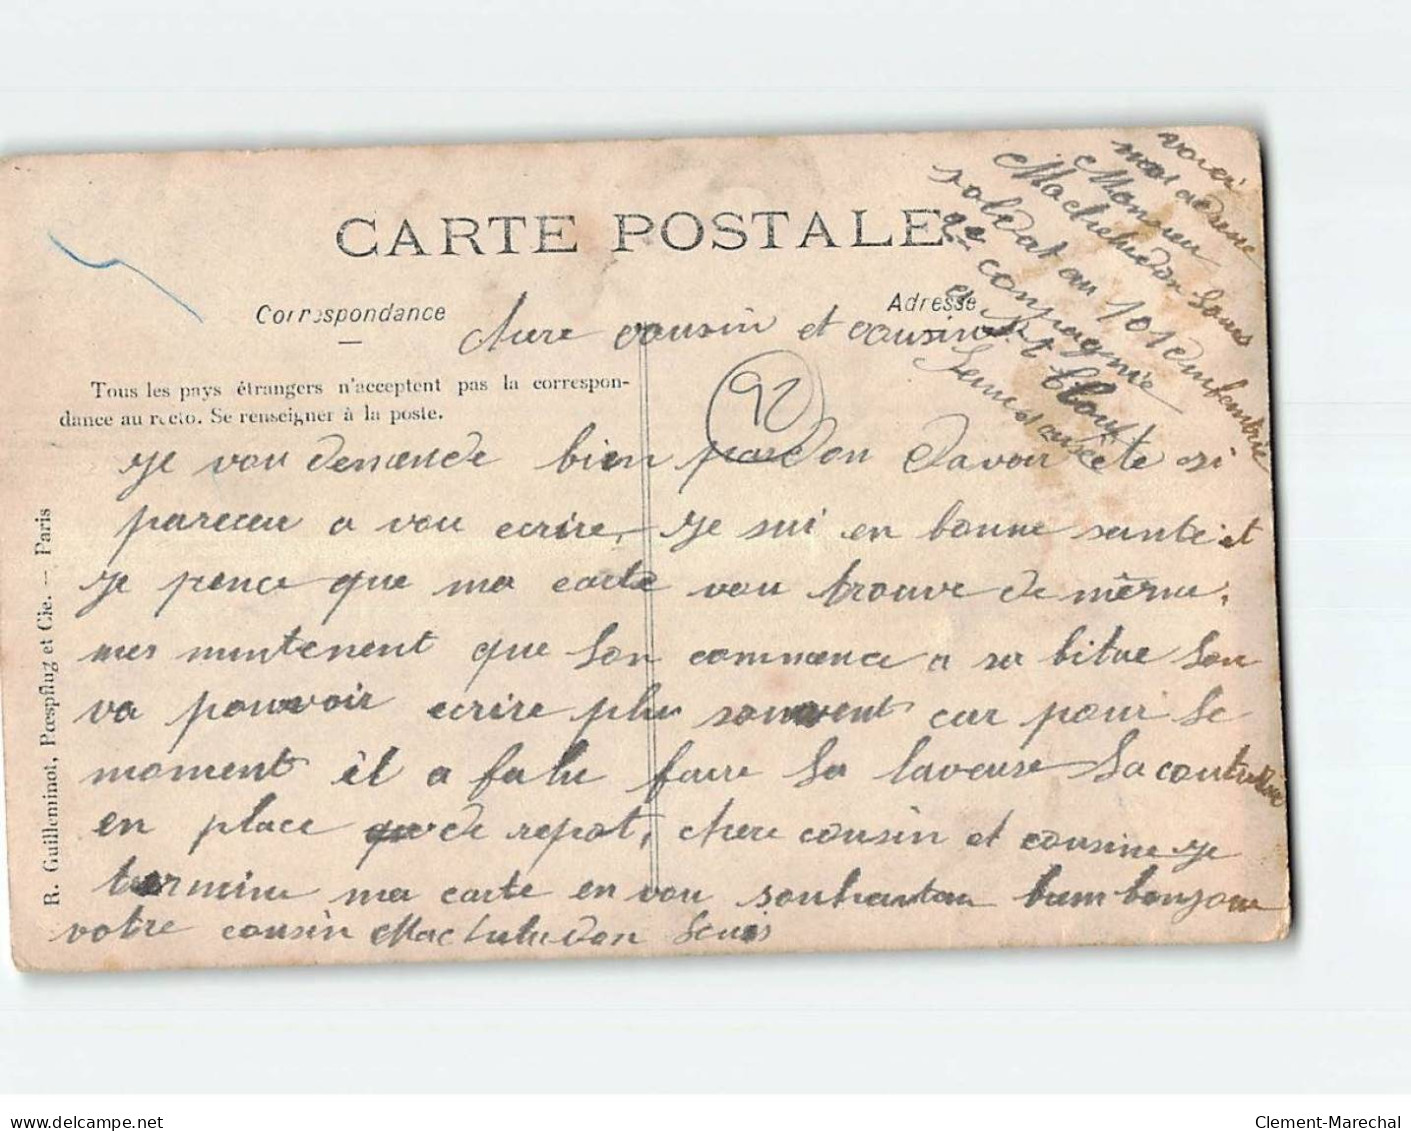 voici
mas adrese
Monsieu
Machetudon Louis
soldat au 101e dinfentrie
9e compagnie
a St Cloud
Seine et oise
CARTE POSTALE
Correspondance
Adresse
chere cousin et cousine
Tous les pays étrangers n'acceptent pas la correspon-
dance au recto. Se renseigner à la poste.
92
R. Guilleminot, Pœspflug et Cie. — Paris
Je vou demende bien pardon davoir ète si
pareceu a vou ecrire, Je sui en bonne santé et
Je pence que ma carte vou trouve de mème,
mes mintenent que lon commence a sa bitue lon
va pouvoir ecrire plu souvent car pour le
moment èt a falu faire la laveuse la couturiere
en place de repot, chere cousin et cousine je
termine ma carte en vou souhaitan bien bonjour
votre cousin Machetudon Louis
delcampe.net
Clement-Marechal